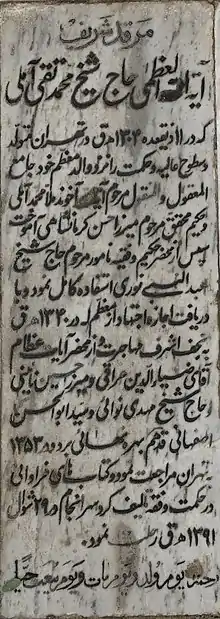 مرقد شریف
آیة الله العظمی حاج شیخ محمد تقی آملی
که در ۱۱ ذیقعده ۱۳۰۴ ه ق در تهران متولد
و سطوح عالیه و حکمت را نزد والد معظم خود جامع
المعقول و المنقول مرحوم آیة الله آخوند ملا محمد آملی
و حکیم محقق مرحوم میرزا حسن کرمانشاهی آموخت
سپس از محضر حکیم و فقیه نامور مرحوم حاج شیخ
عبد النبی نوری استفاده کامل نمود و با
دریافت اجازه اجتهاد از معظم له در ۱۳۴۰ ه ق
به نجف اشرف مهاجرت و از محضر آیات عظام
آقای ضیاء الدین عراقی و میرزا حسین نایینی
و حاج شیخ مهدی نوائی و سید ابو الحسن
اصفهانی قدهم بهره هائی برد و در ۱۳۵۳
به تهران مراجعت نمود و کتاب های فراوانی
در حکمت و فقه تالیف کرد سرانجام در ۲۹ شوال
۱۳۹۱ ه ق رحلت نمود.
یوم ولد و یوم مات و یوم یبعث حیا